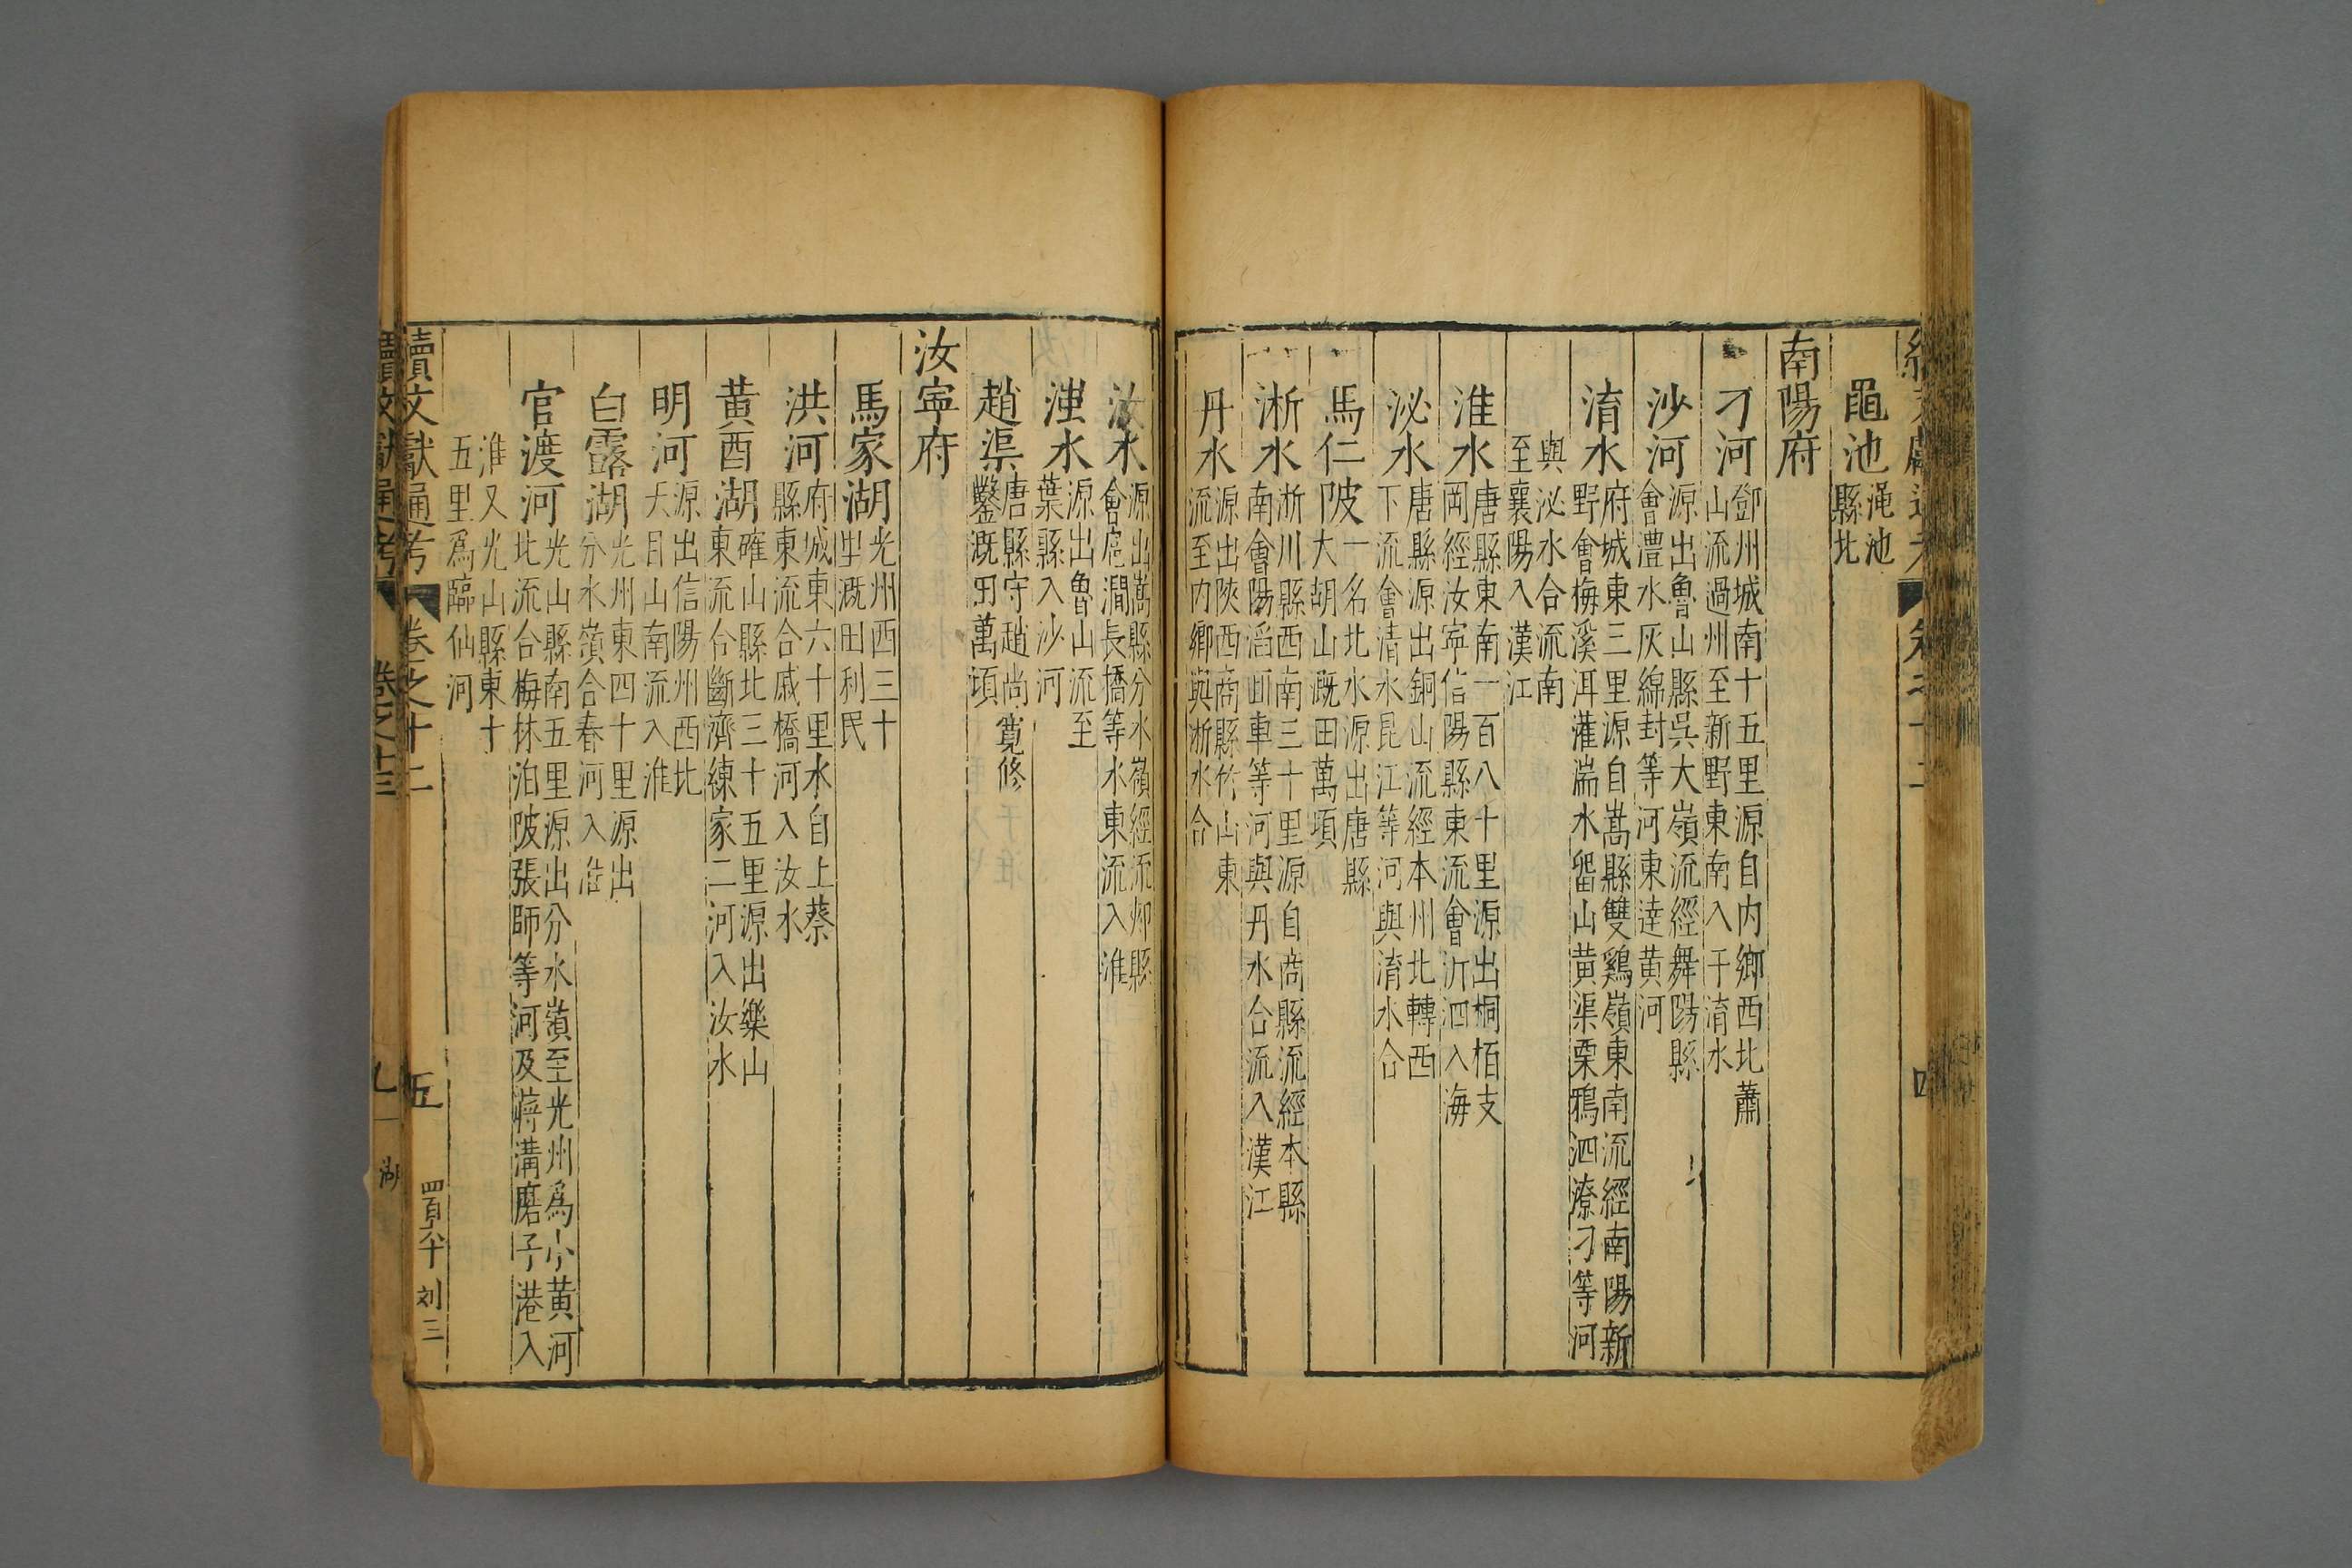 黽池澠池縣北
南陽府
刁河鄧州城南十五里源自内鄉西北蕭山流過州至新野東南入于淯水
沙河源出魯山縣吳大嶺流經舞陽縣會澧水灰綿封等河東達黄河
淯水府城東三里源自嵩縣雙鷄嶺東南流經南陽新野會梅溪洱灌湍水畱山黄渠栗鴉泗潦刁等河
與泌水合流南至襄陽入漢江
淮水唐縣東南一百八十里源出桐栢支岡經汝寧信陽縣東流會沂泗入海
泌水唐縣源出銅山流經本州北轉西下流會清水昆江等河與淯水合
馬仁陂一名北水源出唐縣大胡山溉田萬頃
淅水淅川縣西南三十里源自商縣流經本縣南會陽滔靣車等河與丹水合流入漢江
丹水源出陝西商縣竹山東流至内鄉與淅水合
汝水源出嵩縣分水嶺經流郟縣會扈澗長橋等水東流入淮
滍水源出魯山流至葉縣入沙河
趙渠唐縣守趙尚寬修鑿溉田萬頃
汝寧府
馬家湖光州西三十里溉田利民
洪河府城東六十里水自上蔡縣東流合戚橋河入汝水
黄酉湖確山縣北三十五里源出樂山東流合斷濟練家二河入汝水
明河源出信陽州西北大目山南流入淮
白露湖光州東四十里源出分水嶺合春河入淮
官渡河光山縣南五里源出分水嶺至光州爲小黄河北流合梅林泊陂張師等河及蔣溝磨子港入
淮又光山縣東十五里爲臨仙河
續文獻通考 卷之十二 五 四百八十 刘三